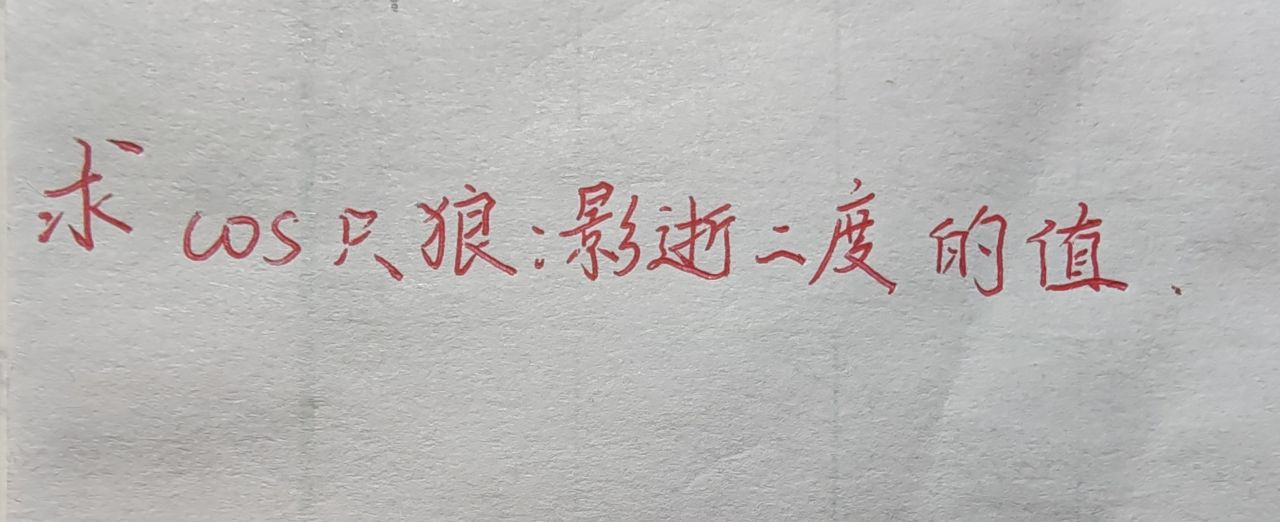 求cos只狼:影逝二度的值.